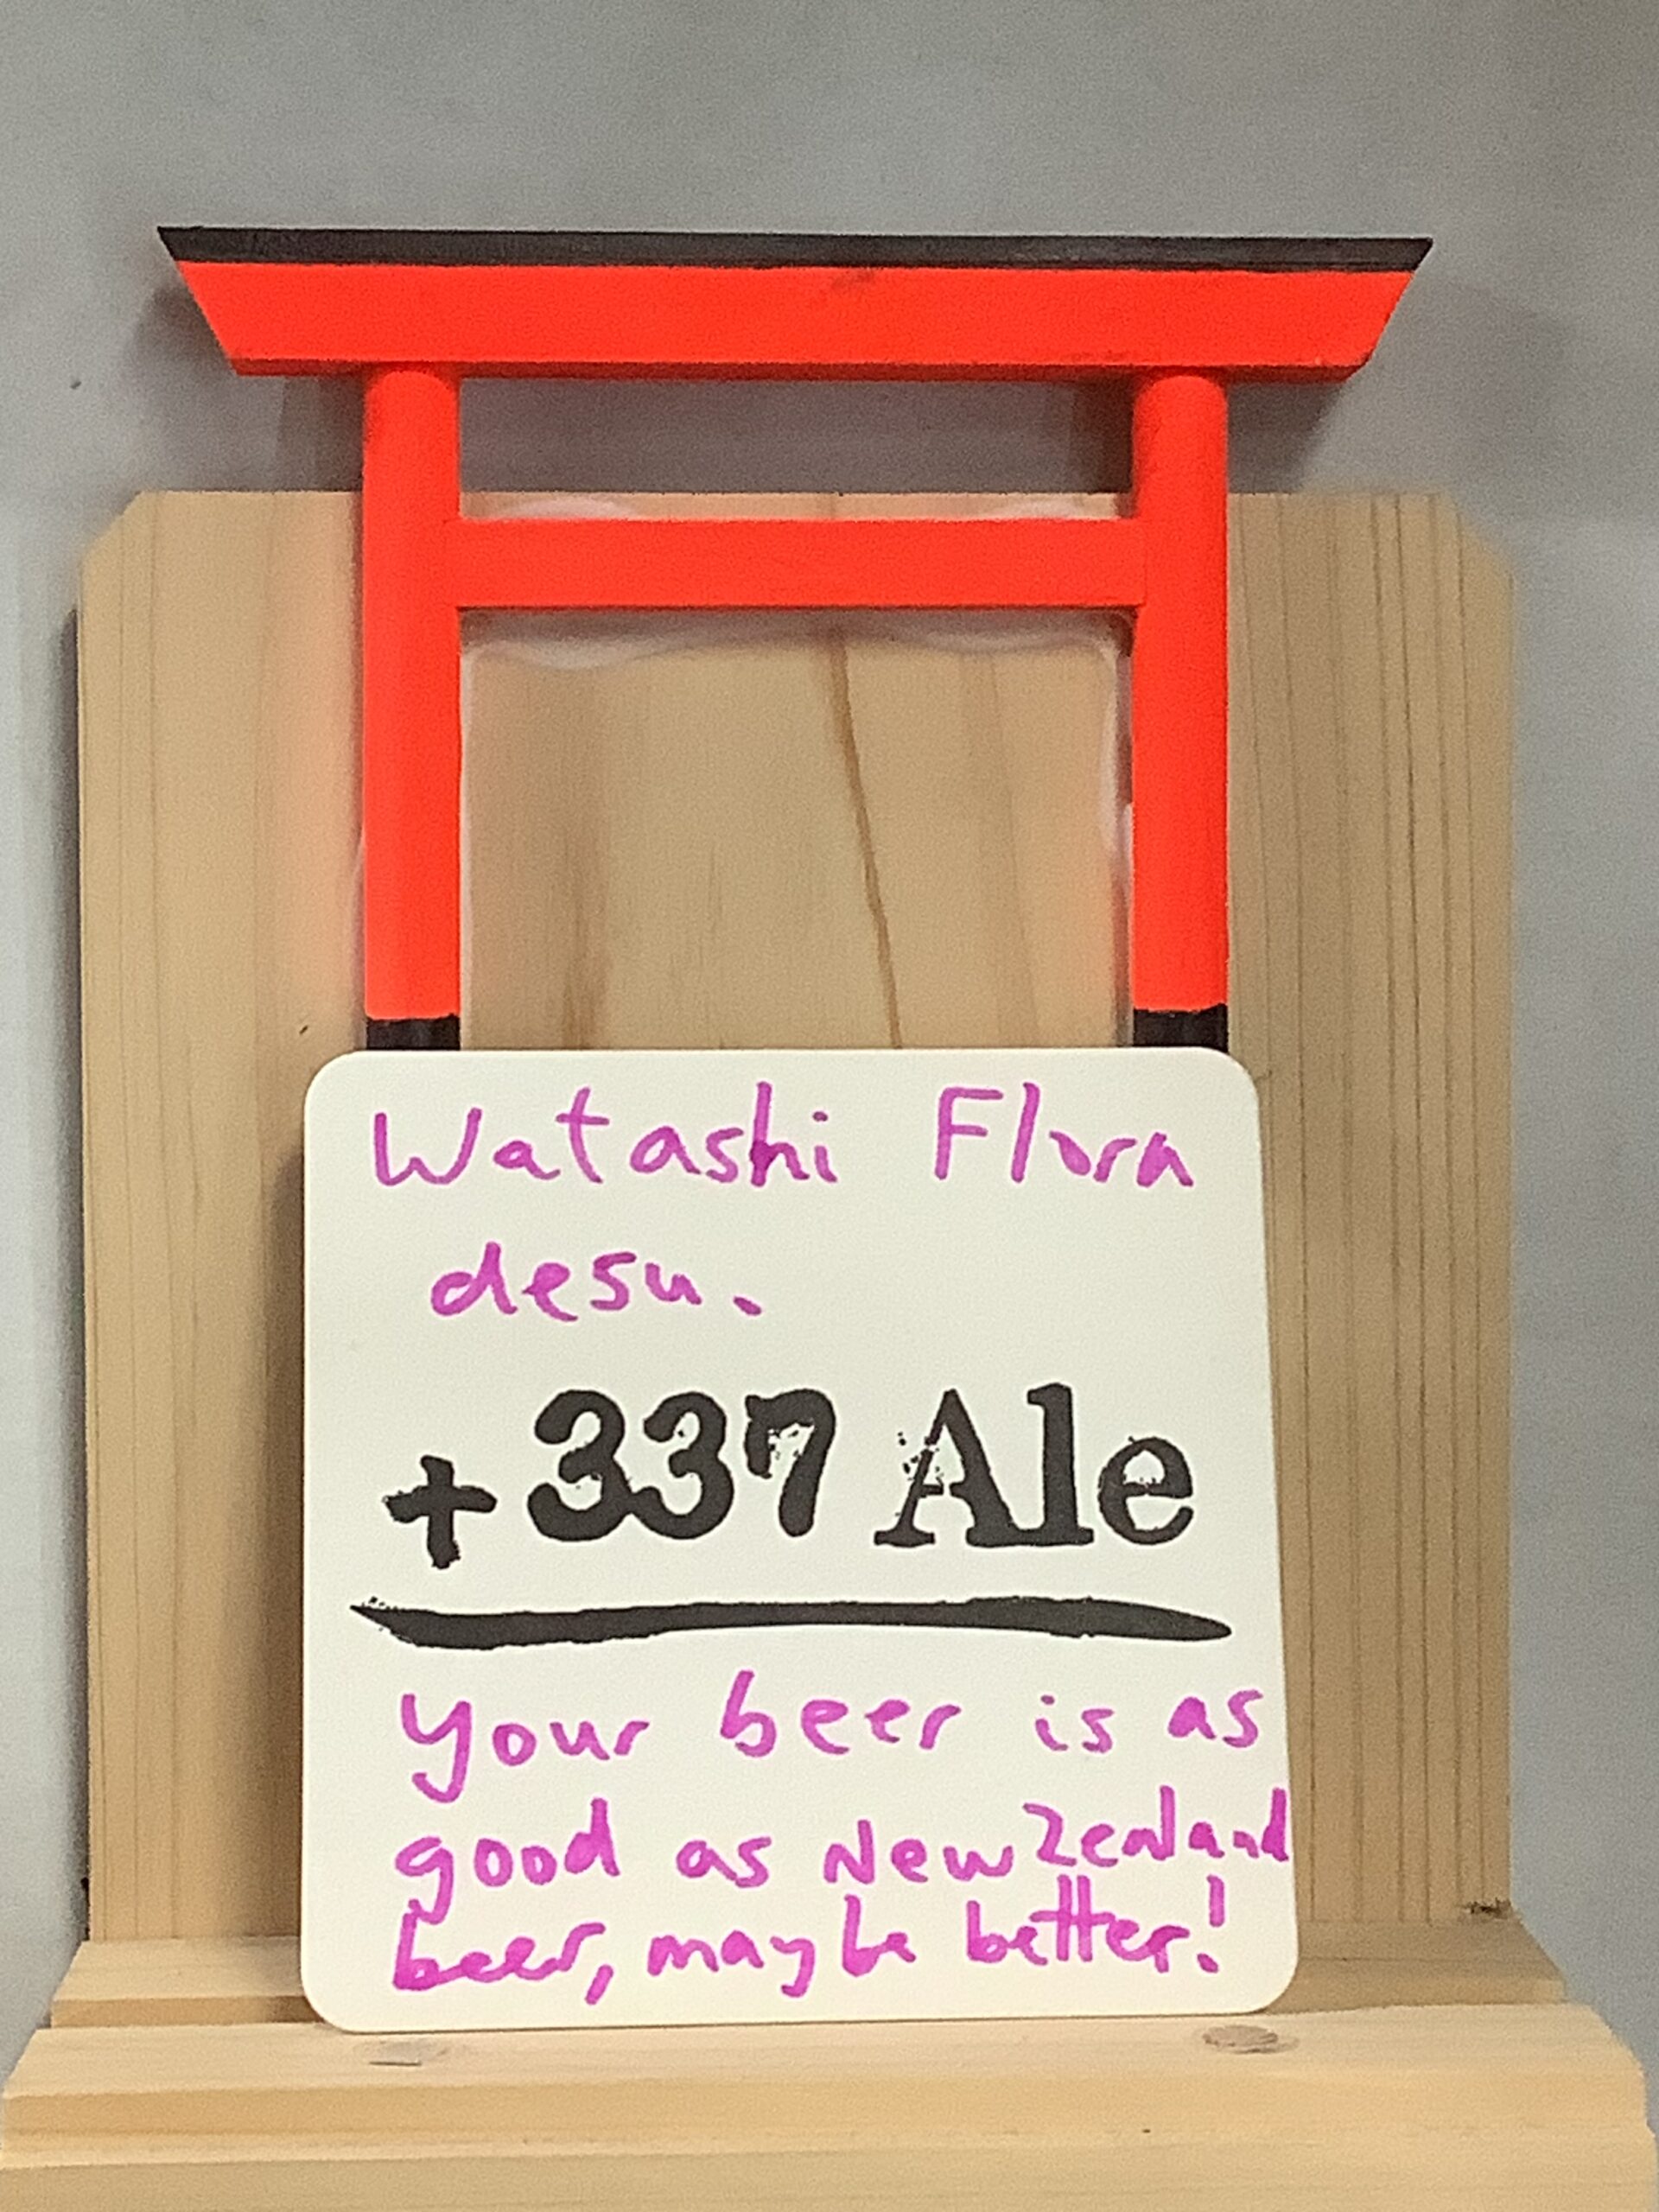 Watashi Flora
desu.
+337 Ale
Your beer is as
good as New Zealand
beer, maybe better!